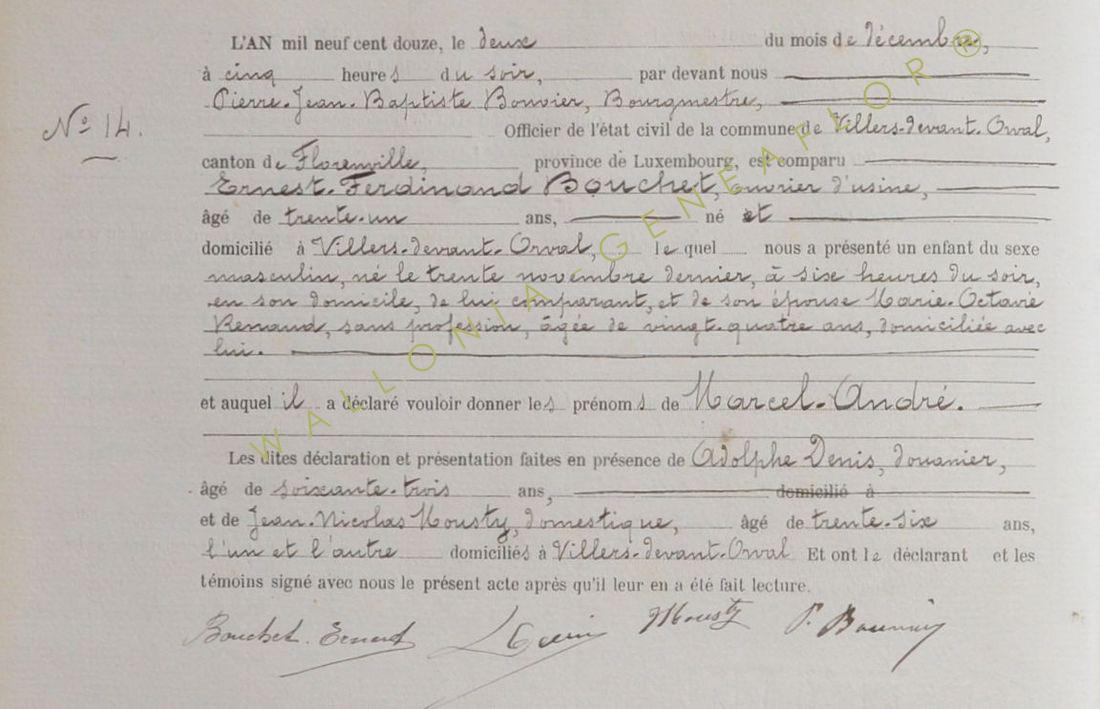 L'AN mil neuf cent douze, le deux du mois de décembre,
à cinq heures du soir, par devant nous
Pierre-Jean-Baptiste Bouvier, Bourgmestre,
Nº 14.
Officier de l'état civil de la commune de Villers-devant-Orval,
canton de Florenville, province de Luxembourg, est comparu
Ernest-Ferdinand Bouchet, ouvrier d'usine,
âgé de trente-un ans, né et
domicilié à Villers-devant-Orval, lequel nous a présenté un enfant du sexe
masculin, né le trente novembre dernier, à six heures du soir,
en son domicile, de lui comparant, et de son épouse Marie-Octavie
Renaud, sans profession, âgée de vingt-quatre ans, domiciliée avec
lui.
et auquel il a déclaré vouloir donner les prénoms de Marcel-André.
Les dites déclaration et présentation faites en présence de Adolphe Denis, douanier,
âgé de soixante-trois ans, domicilié à
et de Jean-Nicolas Housty, domestique, âgé de trente-six ans,
l'un et l'autre domiciliés à Villers-devant-Orval Et ont le déclarant et les
témoins signé avec nous le présent acte après qu'il leur en a été fait lecture.
Bouchet Ernest Housty P. Bouvier
WALLONIA GENEAFLOR ®